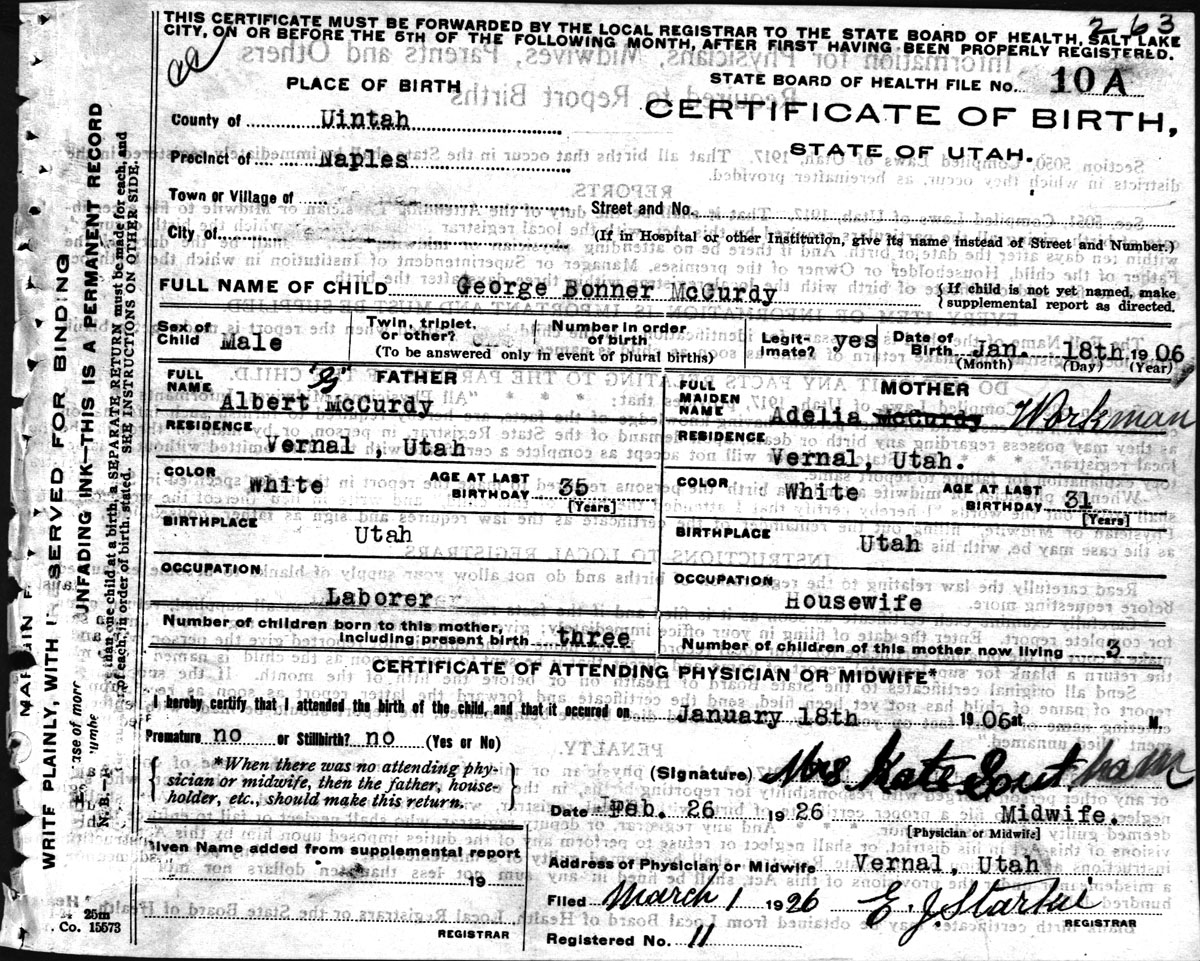 263
THIS CERTIFICATE MUST BE FORWARDED BY THE LOCAL REGISTRAR TO THE STATE BOARD OF HEALTH, SALT LAKE
CITY, ON OR BEFORE THE 5TH OF THE FOLLOWING MONTH, AFTER FIRST HAVING BEEN PROPERLY REGISTERED.
PLACE OF BIRTH
STATE BOARD OF HEALTH FILE No. 10 A
CERTIFICATE OF BIRTH,
STATE OF UTAH.
County of Uintah
Precinct of Naples
Town or Village of
Street and No.
City of
(If in Hospital or other Institution, give its name instead of Street and Number.)
FULL NAME OF CHILD George Bonner McCurdy
{If child is not yet named, make
supplemental report as directed.
Sex of Child Male
Twin, triplet, or other?
Number in order of birth
(To be answered only in event of plural births)
Legitimate? yes
Date of Birth Jan. 18th 1906
(Month) (Day) (Year)
FATHER
FULL NAME Albert "G" McCurdy
RESIDENCE
Vernal, Utah
COLOR White
AGE AT LAST BIRTHDAY 35
[Years]
BIRTHPLACE
Utah
OCCUPATION
Laborer
MOTHER
FULL MAIDEN NAME Adelia McCurdy Workman
RESIDENCE
Vernal, Utah.
COLOR White
AGE AT LAST BIRTHDAY 31
[Years]
BIRTHPLACE Utah
OCCUPATION
Housewife
Number of children born to this mother,
including present birth three
Number of children of this mother now living 3
CERTIFICATE OF ATTENDING PHYSICIAN OR MIDWIFE*
I hereby certify that I attended the birth of the child, and that it occured on January 18th 1906 at M.
Premature no or Stillbirth? no (Yes or No)
{*When there was no attending phy-
sician or midwife, then the father, house-
holder, etc., should make this return.}
(Signature) Mrs Kate Southam
Date Feb. 26 1926 Midwife.
[Physician or Midwife]
Given Name added from supplemental report
19
REGISTRAR
Address of Physician or Midwife Vernal, Utah
Filed March 1 1926
REGISTRAR
Registered No. 11
25m
Co. 15573
WRITE PLAINLY, WITH UNFADING INK—THIS IS A PERMANENT RECORD
RESERVED FOR BINDING
than one child at a birth, a SEPARATE RETURN must be made for each, and
of each, in order of birth, stated. SEE INSTRUCTIONS ON OTHER SIDE.